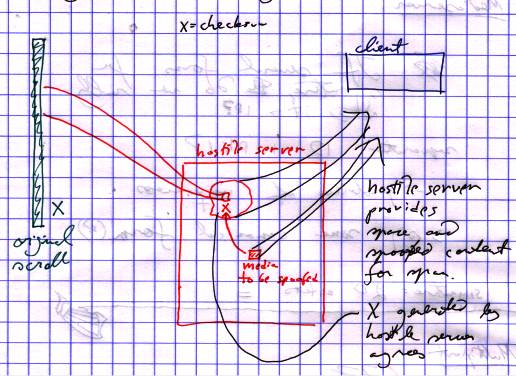 X = checksum
client
hostile server
X
X
original
scroll
media
to be spoofed
hostile server
provides
space and
spoofed content
for span.
X generated by
hostile server
agrees